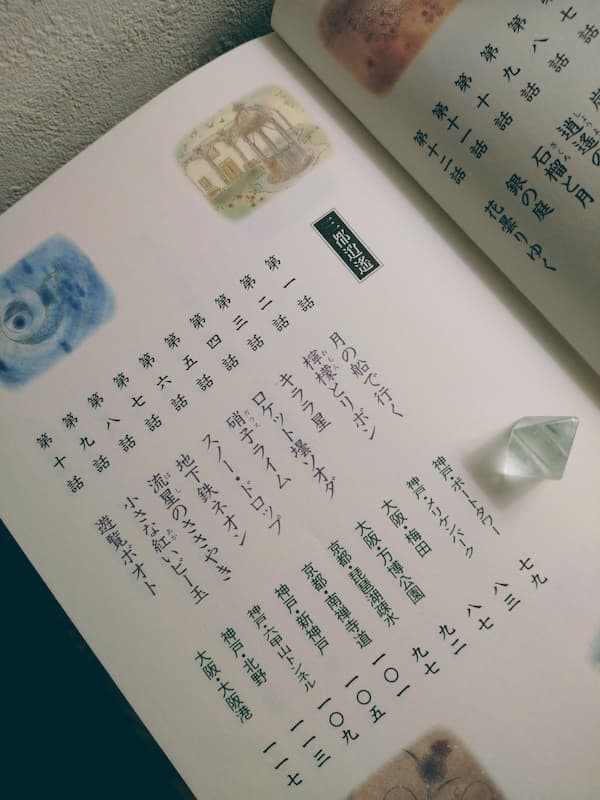 七話
第八話
第九話 逍遥の
第十話 石榴と月
第十一話 銀の庭
第十二話 花曇りゆく
三都逍遙
第一話 月の船で行く 神戸・ポートタワー 七九
第二話 檸檬とリボン 神戸・メリケンパーク 八三
第三話 キララ星 大阪・梅田 八七
第四話 ロケット壜ソオダ 大阪・万博公園 九二
第五話 硝子ライム 京都・琵琶湖疎水 九七
第六話 スノー・ドロップ 京都・南禅寺道 一〇一
第七話 地下鉄ネオン 神戸・新神戸 一〇五
第八話 流星のささやき 神戸・六甲山トンネル 一〇九
第九話 小さな紅いビー玉 神戸・北野 一一三
第十話 遊覧ボオト 大阪・大阪港 一一七